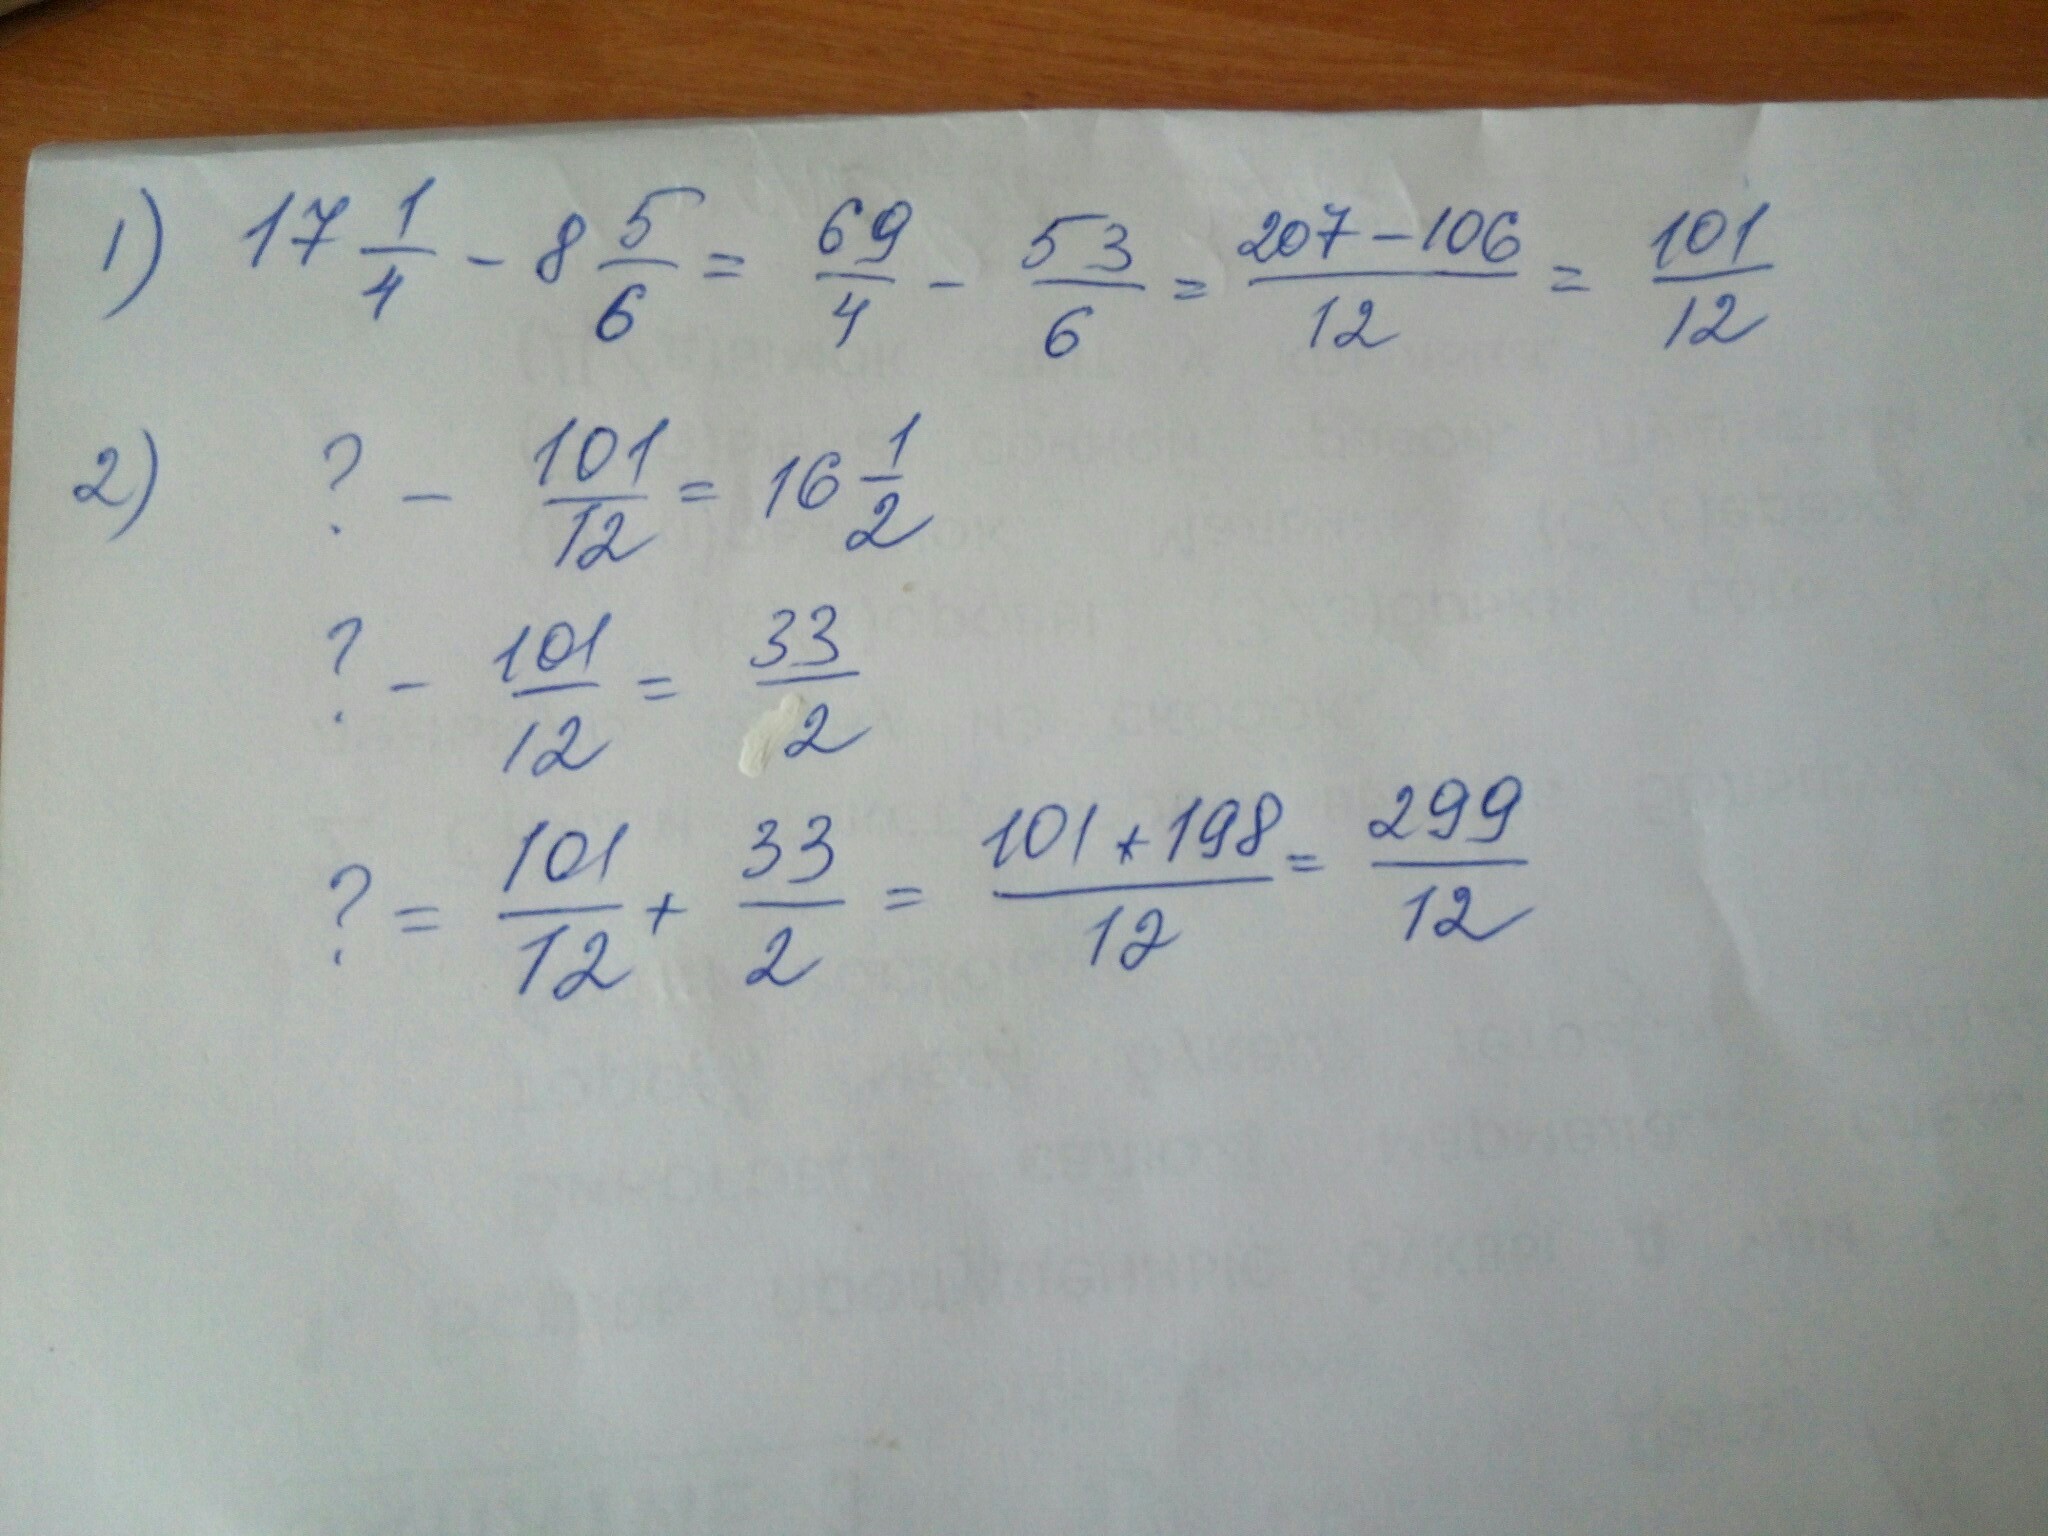 1) 17 1/4 - 8 5/6 = 69/4 - 53/6 = 207-106/12 = 101/12
2) ? - 101/12 = 16 1/2
? - 101/12 = 33/2
? = 101/12 + 33/2 = 101+198/12 = 299/12